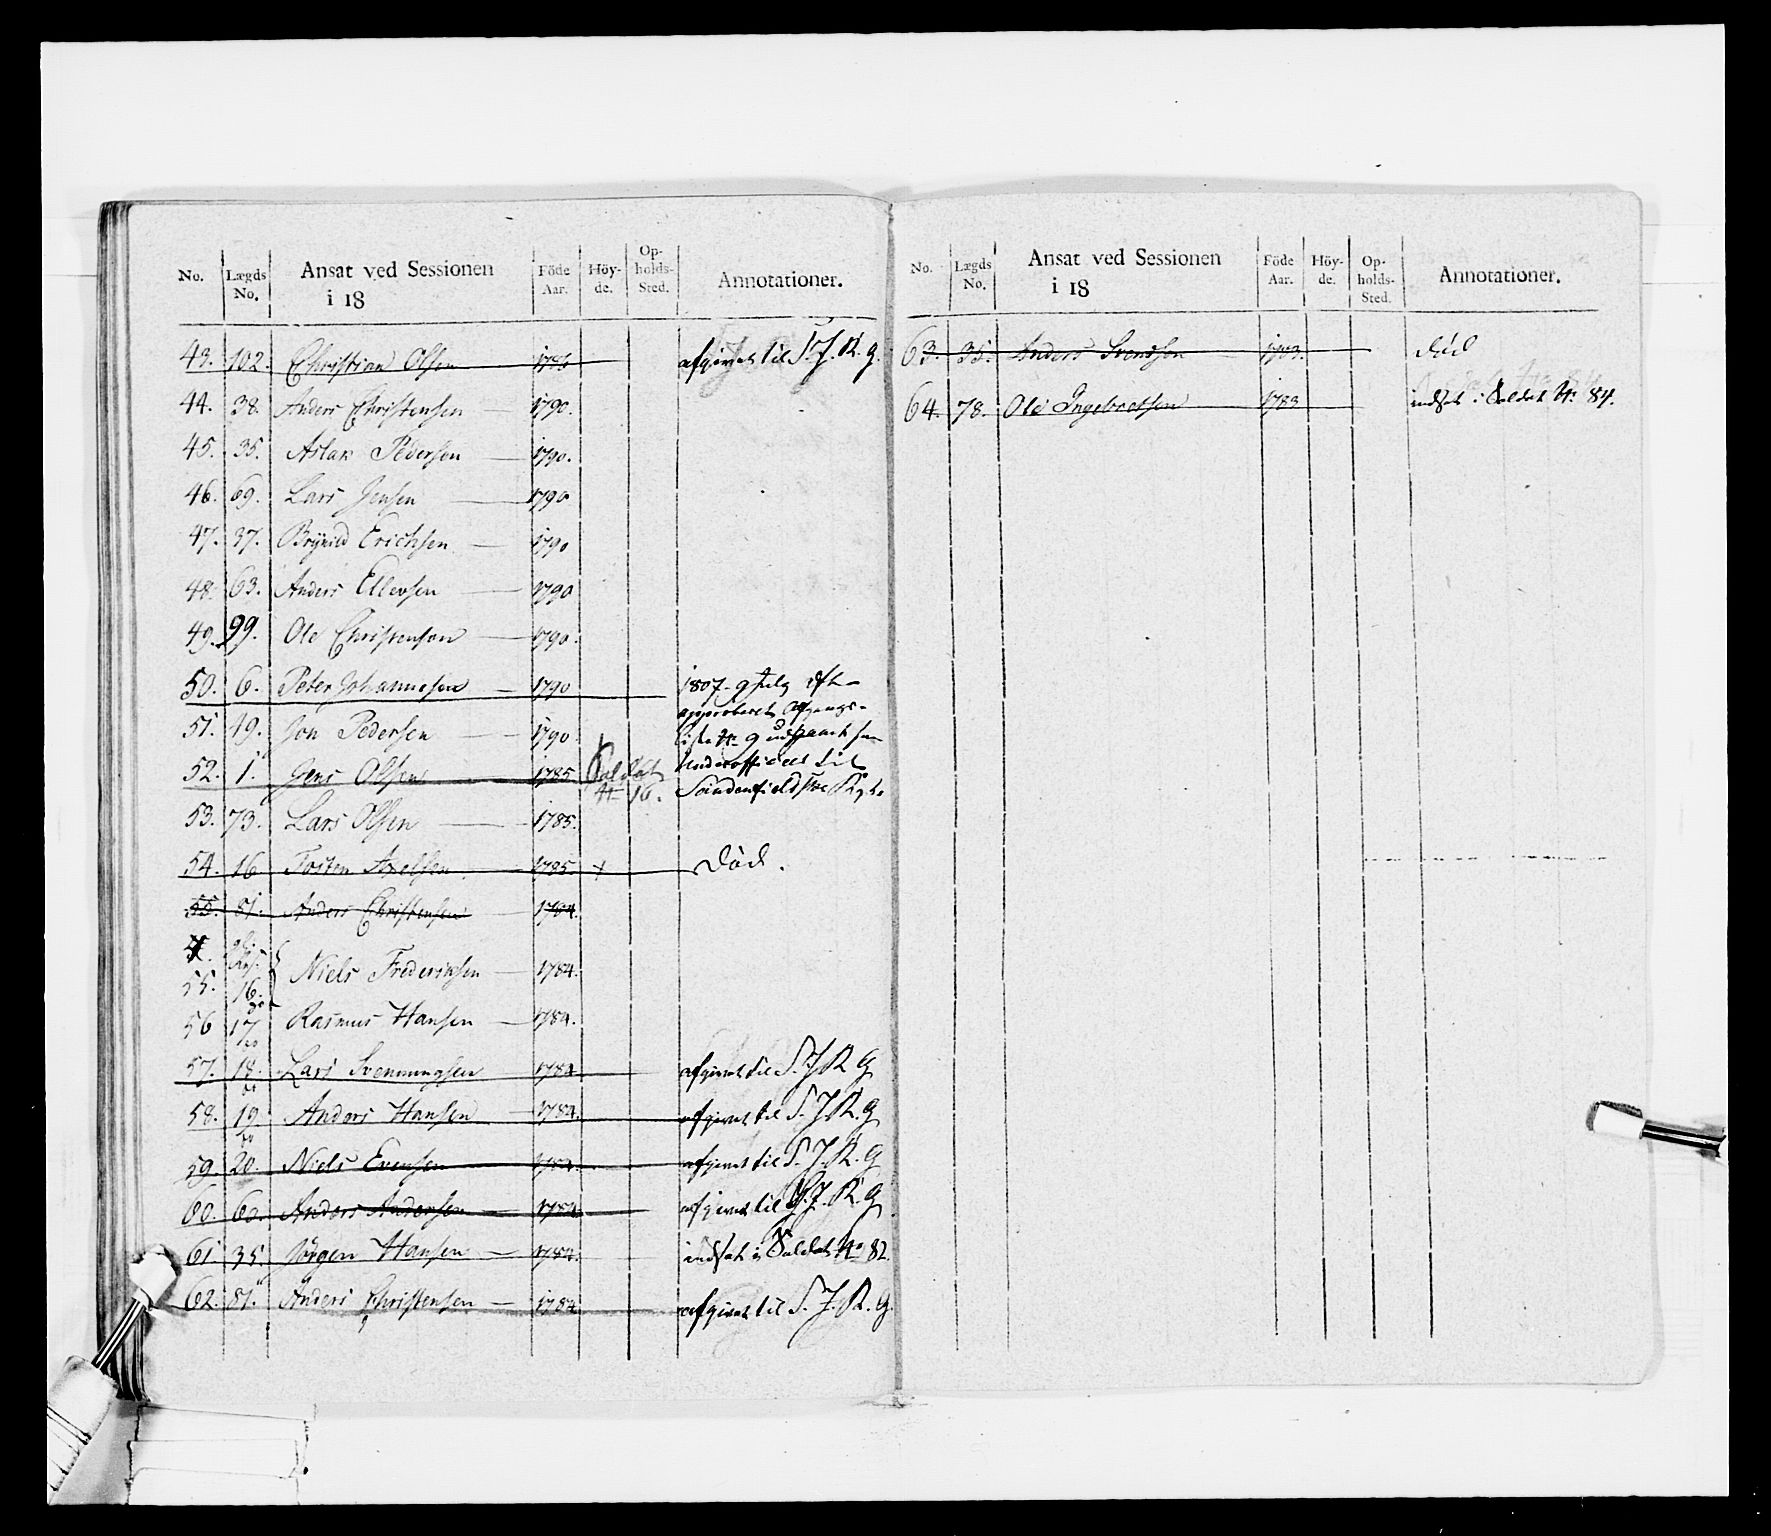 No. Lægds No. Ansat ved Sessionen i 18 Föde Aar. Höy-de. Op-holds-Sted. Annotationer.
43. 102. Christian Olsen 1786 afgivet til S. J. R. G.
44. 38. Anders Christensen — 1790.
45. 35. Aslak Pedersen — 1790.
46. 69. Lars Jensen — 1790
47. 37. Brynild Erichsen — 1790
48. 63. Anders Ellevsen — 1790
49. 99. Ole Christensen — 1790.
50. 6. Peter Johannesen — 1790 1807 - 9 July efter
approberet Afgangs-
51. 19. Jon Pedersen — 1790 liste No 9 udsat som
Underofficeer til
52. 1. Jens Olsen 1785 Soldat No 16. Søndenfieldske Rgt
53. 73. Lars Olsen — 1785.
54. 16 Tosten Axelsen 1785. + Død.
55. 81. Anders Christensen — 1784.
55. 16. Niels Frederiksen — 1784.
56 17 Rasmus Hansen — 1784.
57. 18. Lars Svenningsen 1784 afgivet til S. J. R. G
58. 19. Anders Hansen — 1784. afgivet til S. J. R. G
59. 20. Niels Evensen — 1784. afgivet til S. J. R. G
60. 60. Anders Andersen — 1784. afgivet til S. J. R. G
61. 35. Jörgen Hansen — 1784. indsat i Soldat No 82.
62. 81. Anders Christensen — 1784 afgivet til S. J. R. G.
No. Lægds No. Ansat ved Sessionen i 18 Föde Aar. Höy-de. Op-holds-Sted. Annotationer.
63. 35. Anders Svendsen 1783. død
64. 78. Ole Ingebretsen 1783 indsat i Soldat No 84.